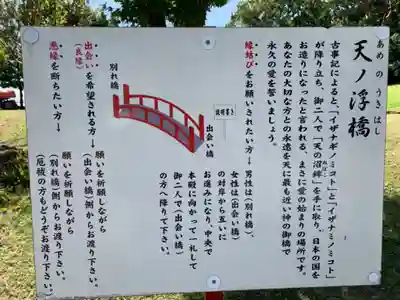 天ノ浮橋
あめ の うき はし
古事記によると、「イザナギノミコト」と「イザナミノミコト」
が降り立ち、御二人で「天の沼鉾」を手に取り、日本の国を
お造りになったと言われる、まさに愛の始まりの場所です。
あなたの大切な方との永遠を天に最も近い神の御橋で
永久の愛を誓いましょう。
・縁結びをお願いされたい方→男性は(別れ橋)、
女性は(出会い橋)
の対岸から互いに
お進みになり、中央で
本殿に向かって一礼して
御二人で(出会い橋)
の方へ降りて下さい。
説明書き
出会い橋
別れ橋
・出会いを希望される方→願いを祈願しながら
(良縁)
(出会い橋)側からお渡り下さい。
・悪縁を断ちたい方→願いを祈願しながら
(別れ橋)側からお渡り下さい。
(厄被の方もどうぞお渡り下さい。)